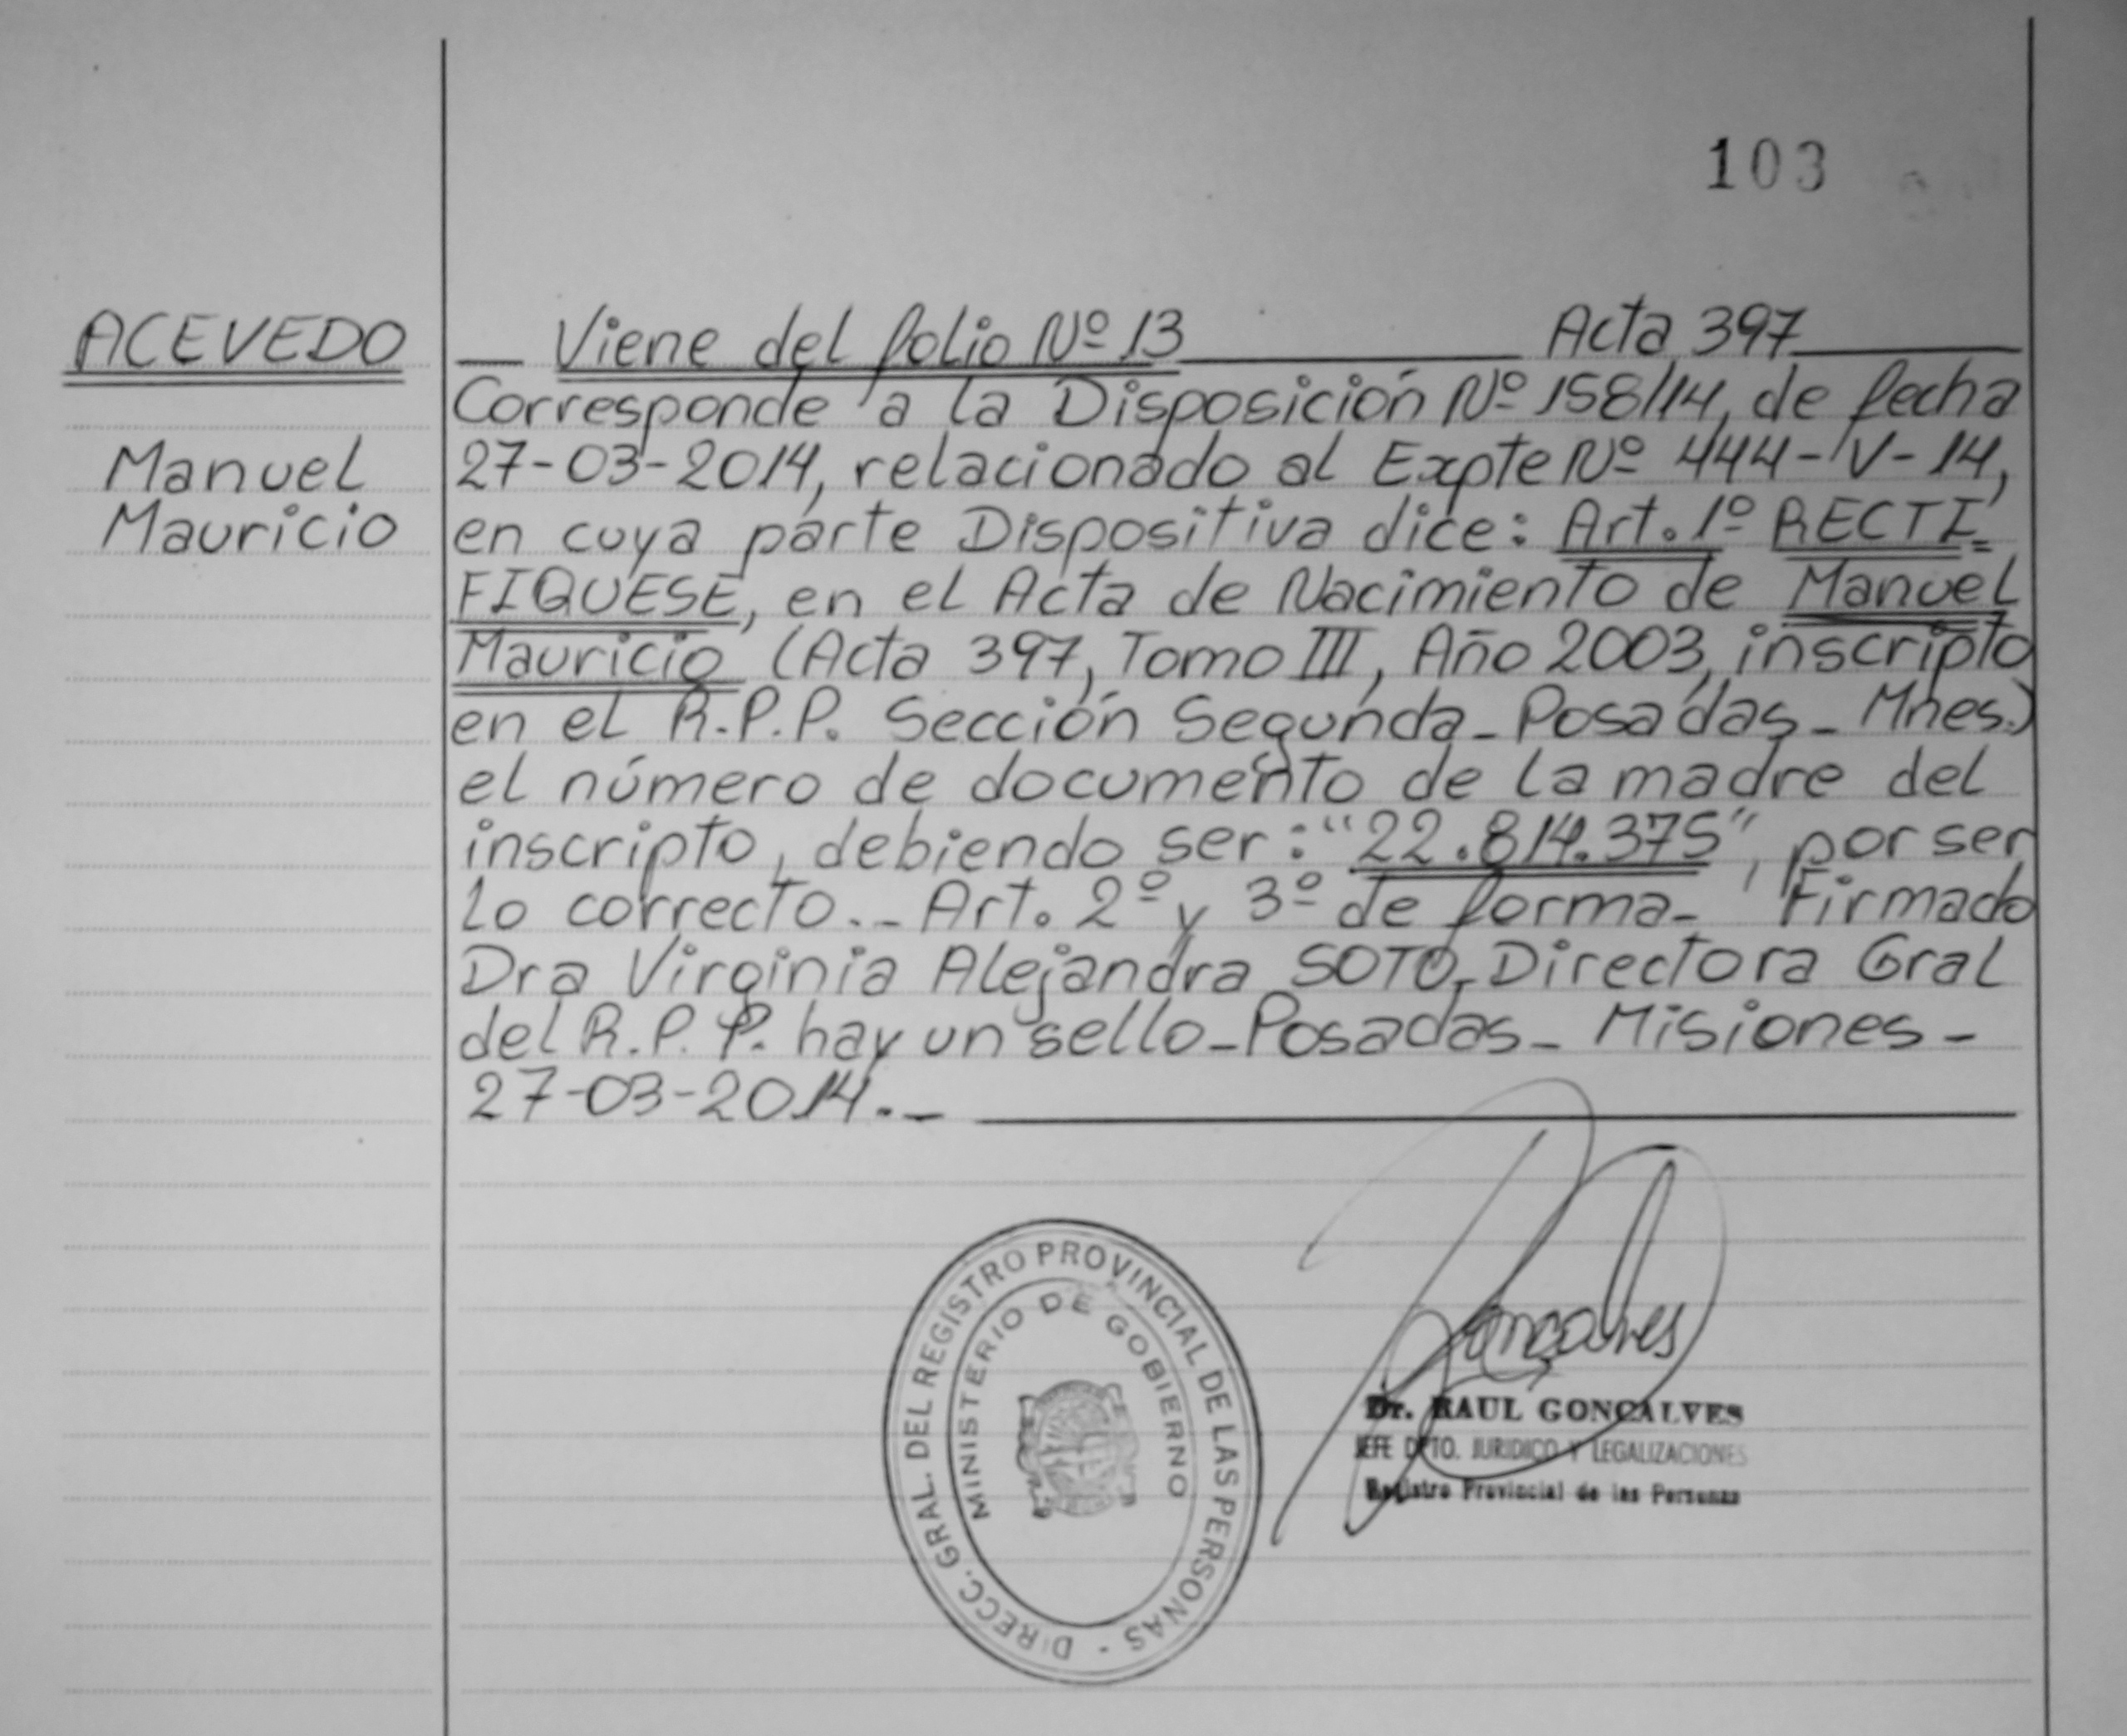 103
ACEVEDO
Manuel
Mauricio
Viene del folio Nº 13 Acta 397
Corresponde a la Disposición Nº 158/14, de fecha
27-03-2014, relacionado al Expte Nº 444-V-14,
en cuya parte Dispositiva dice: Art. 1º RECTI=
FIQUESE, en el Acta de Nacimiento de Manuel
Mauricio (Acta 397, Tomo III, Año 2003, inscripto
en el R.P.P. Sección Segunda_Posadas_Mnes.)
el número de documento de la madre del
inscripto, debiendo ser: "22.814.375", por ser
lo correcto._ Art. 2º y 3º de forma_ Firmado
Dra Virginia Alejandra SOTO_Directora Gral
del R.P.P. hay un sello_Posadas_Misiones_
27-03-2014._
DIRECC. GRAL. DEL REGISTRO PROVINCIAL DE LAS PERSONAS -
MINISTERIO DE GOBIERNO
Goncalves
Dr. RAUL GONCALVES
JEFE DPTO. JURIDICO Y LEGALIZACIONES
Registro Provincial de las Personas